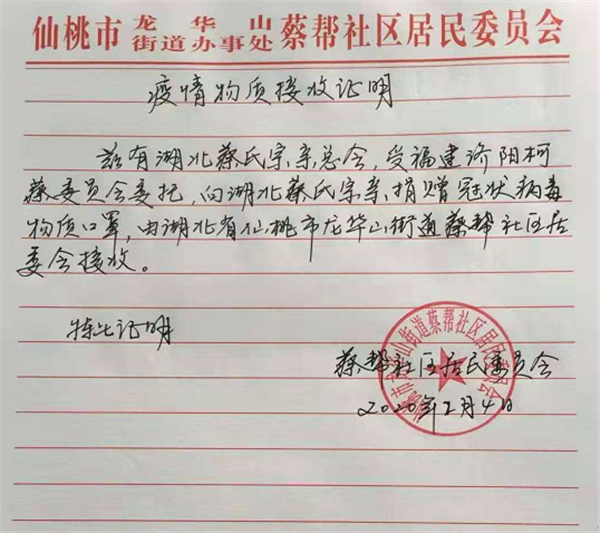 仙桃市龙华山街道办事处蔡帮社区居民委员会
疫情物质接收证明
兹有湖北蔡氏宗亲总会,受福建济阳柯
蔡委员会委托,向湖北蔡氏宗亲捐赠冠状病毒
物质口罩,由湖北省仙桃市龙华山街道蔡帮社区居
委会接收。
特此证明
蔡帮社区居民委员会
2020年2月4日
仙桃市龙华山街道蔡帮社区居民委员会